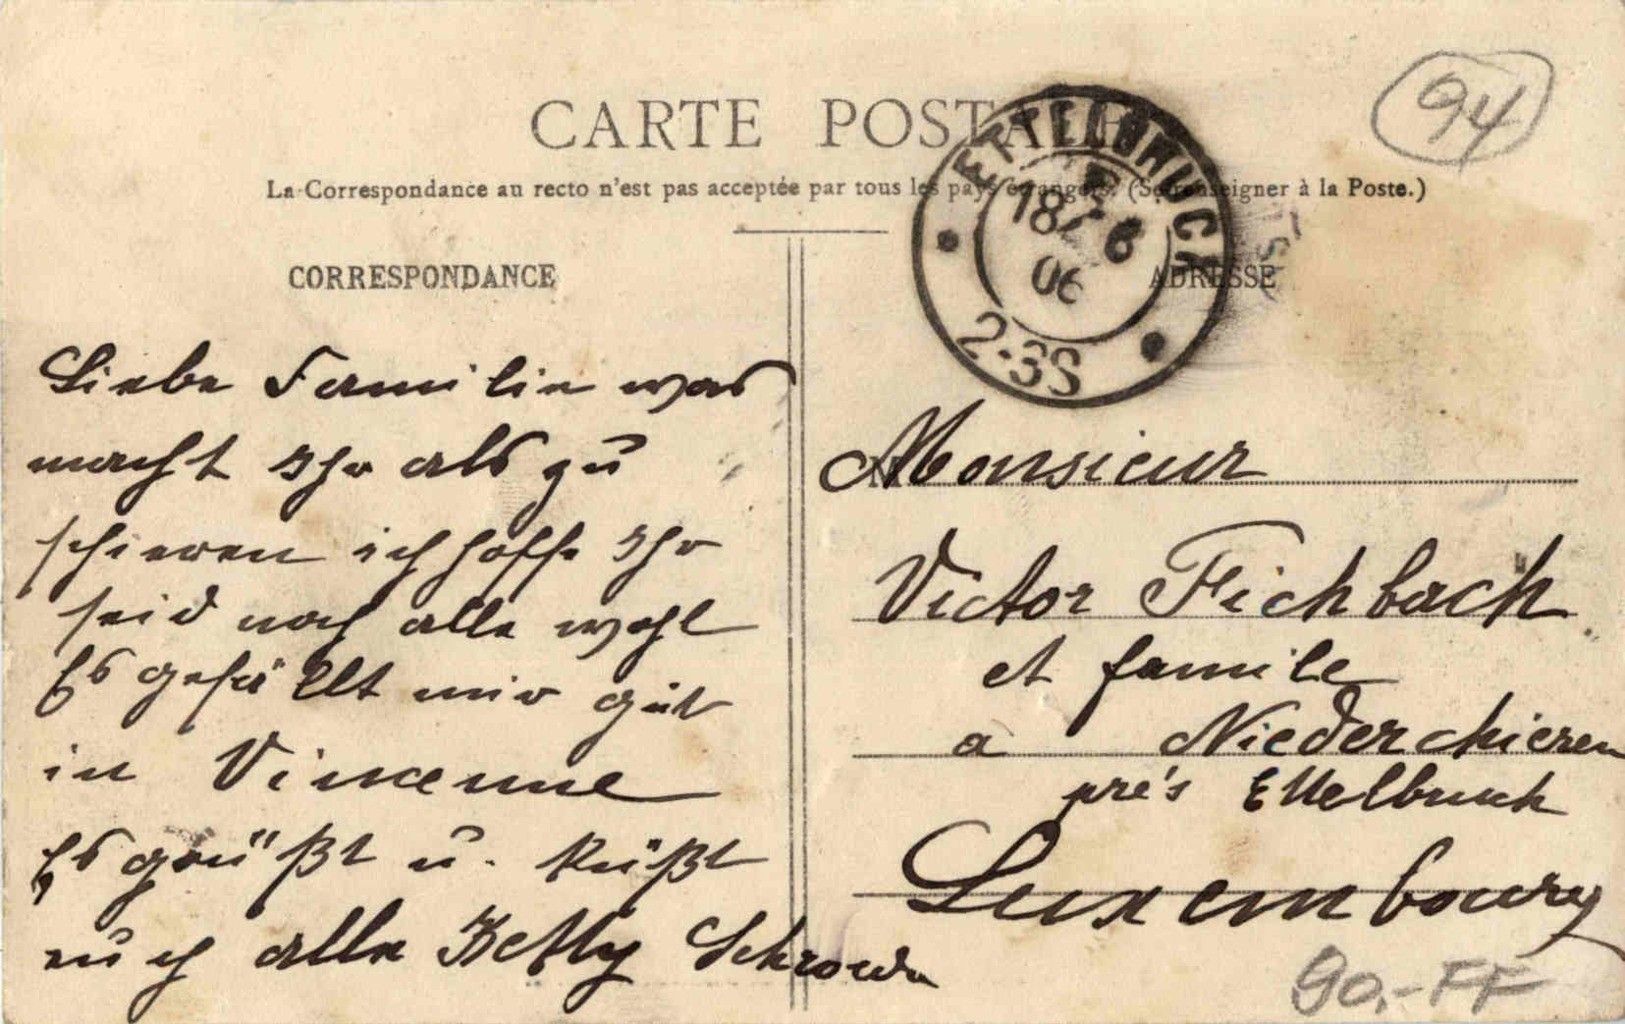 94
CARTE POSTALE
La Correspondance au recto n'est pas acceptée par tous les pays étrangers. (Se renseigner à la Poste.)
ETTELBRUCK
18 6
06
2-3S
CORRESPONDANCE
ADRESSE
Liebe Familie was
macht Ihr als zu
schieren ich hoffe Ihr
seid noch alle wohl
Es gefällt mir gut
in Vincenne
Es grüßt u. küßt
euch alle Ketty
Monsieur
Victor Fichbach
et famile
a Niederchieren
prés Ettelbruck
Luxembourg
90.-FF